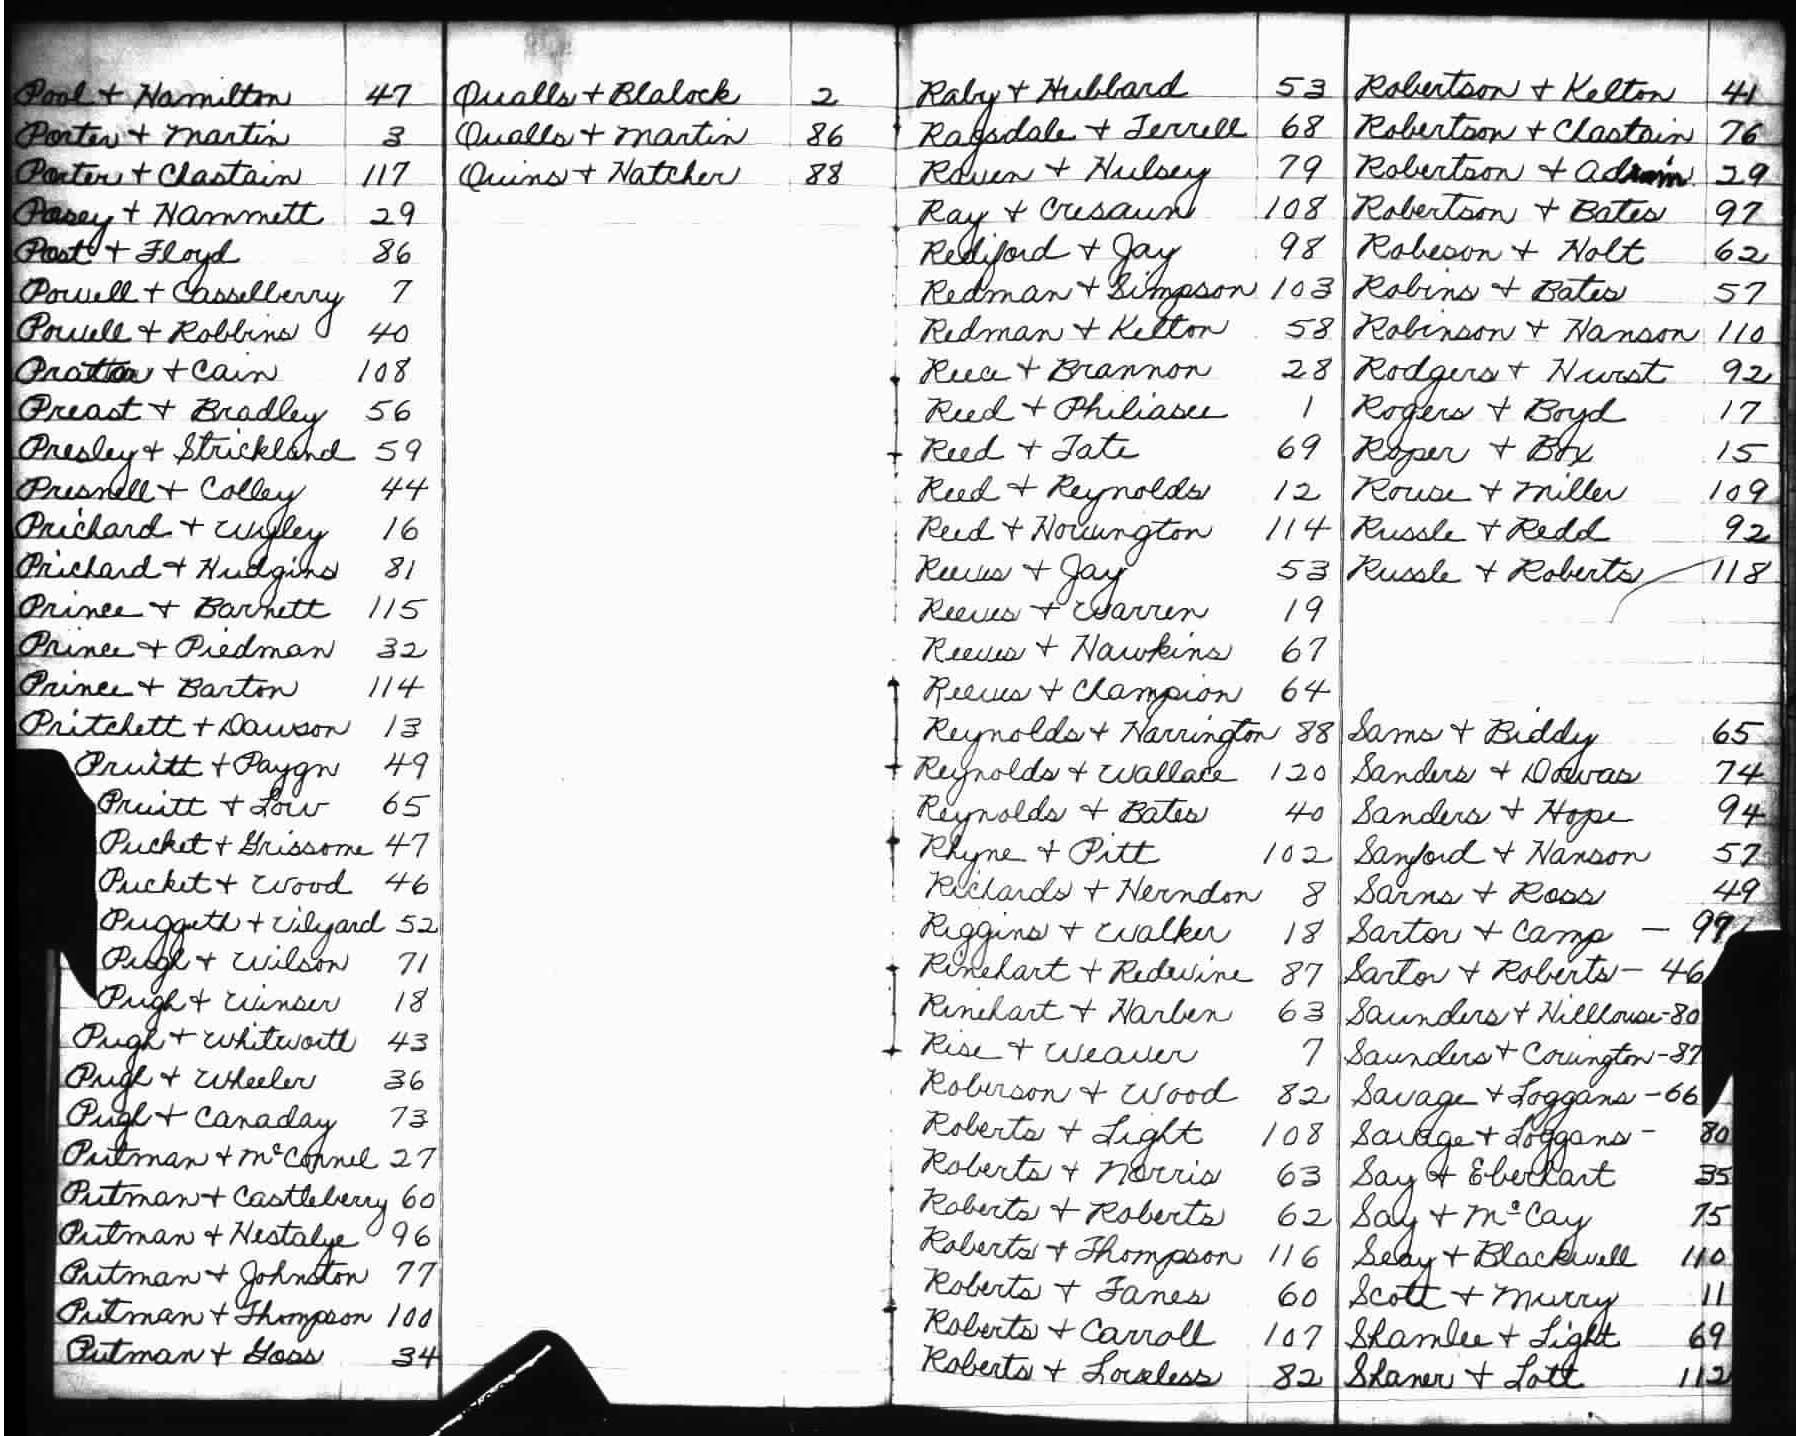 Pool + Hamilton 47
Porter + Martin 3
Porter + Chastain 117
Posey + Hammett 29
Post + Floyd 86
Powell + Casselberry 7
Powell + Robbins 40
+ Cain 108
Preast + Bradley 56
Presley + Strickland 59
Presnell + Colley 44
Prichard + Wyley 16
Prichard + Hudgins 81
Prince + Barnett 115
Prince + Piedman 32
Prince + Barton 114
Pritchett + Dawson 13
Pruitt + Paygn 49
Pruitt + Low 65
Pucket + Grissome 47
Pucket + Wood 46
Puggeth + Vilyard 52
Pugh + Wilson 71
Pugh + Winser 18
Pugh + Whitworth 43
Pugh + Wheeler 36
Pugh + Canaday 73
Putman + McConnel 27
Putman + Castleberry 60
Putman + Hestalye 96
Putman + Johnston 77
Putman + Thompson 100
Putman + Goss 34
Qualls + Blalock 2
Qualls + Martin 86
Quins + Hatcher 88
Raby + Hubbard 53
Ragsdale + Terrell 68
Raven + Hulsey 79
Ray + Cresaun 108
Rediford + Jay 98
Redman + Simpson 103
Redman + Kelton 58
Reece + Brannon 28
Reed + Philiasee 1
Reed + Tate 69
Reed + Reynolds 12
Reed + Howington 114
Reeves + Jay 53
Reeves + Warren 19
Reeves + Hawkins 67
Reeves + Champion 64
Reynolds + Harrington 88
Reynolds + Wallace 120
Reynolds + Bates 40
Rhyne + Pitt 102
Richards + Herndon 8
Riggins + Walker 18
Rinehart + Redwine 87
Rinehart + Harben 63
Rise + Weaver 7
Roberson + Wood 82
Roberts + Light 108
Roberts + Norris 63
Roberts + Roberts 62
Roberts + Thompson 116
Roberts + Fanes 60
Roberts + Carroll 107
Roberts + Loveless 82
Robertson + Kelton 41
Robertson + Chastain 76
Robertson + 29
Robertson + Bates 97
Robeson + Holt 62
Robins + Bates 57
Robinson + Hanson 110
Rodgers + Hurst 92
Rogers + Boyd 17
Roper + Box 15
Rouse + Miller 109
Russle + Redd 92
Russle + Roberts 118
Sams + Biddy 65
Sanders + Dowas 74
Sanders + Hope 94
Sanford + Hanson 57
Sarns + Ross 49
Sartor + Camp - 97
Sartor + Roberts - 46
Saunders + Hillhouse - 80
Saunders + Covington - 87
Savage + Loggans - 66
Savage + Loggans - 80
Say + Eberhart 35
Say + McCay 75
Seay + Blackwell 110
Scott + Murry 11
Shamlee + Light 69
Shaner + Lott 112